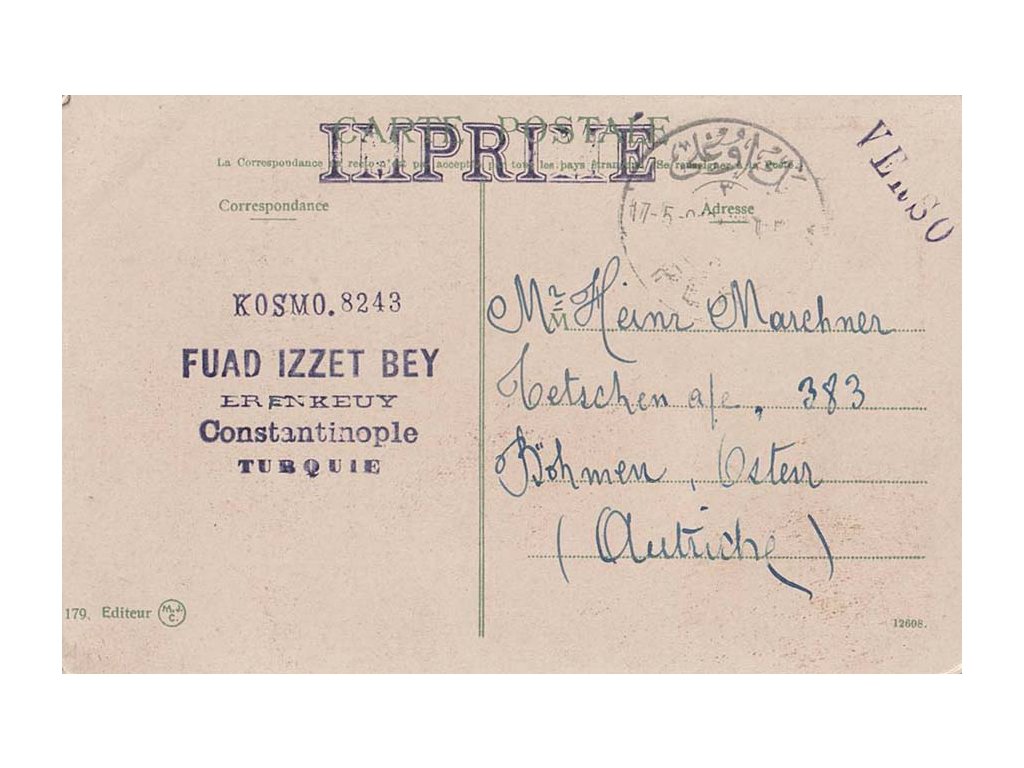 CARTE POSTALE
IMPRIMÉ
La Correspondance au recto n'est pas acceptée par tous les pays étrangers (Se renseigner à la Poste.)
VERSO
Correspondance
Adresse
17-5
KOSMO. 8243
FUAD IZZET BEY
ERENKEUY
Constantinople
TURQUIE
M
Mr Heinr Marchner
Tetschen a/e, 383
Böhmen, Osterr
(Autriche)
179. Editeur M.J.C.
12608.